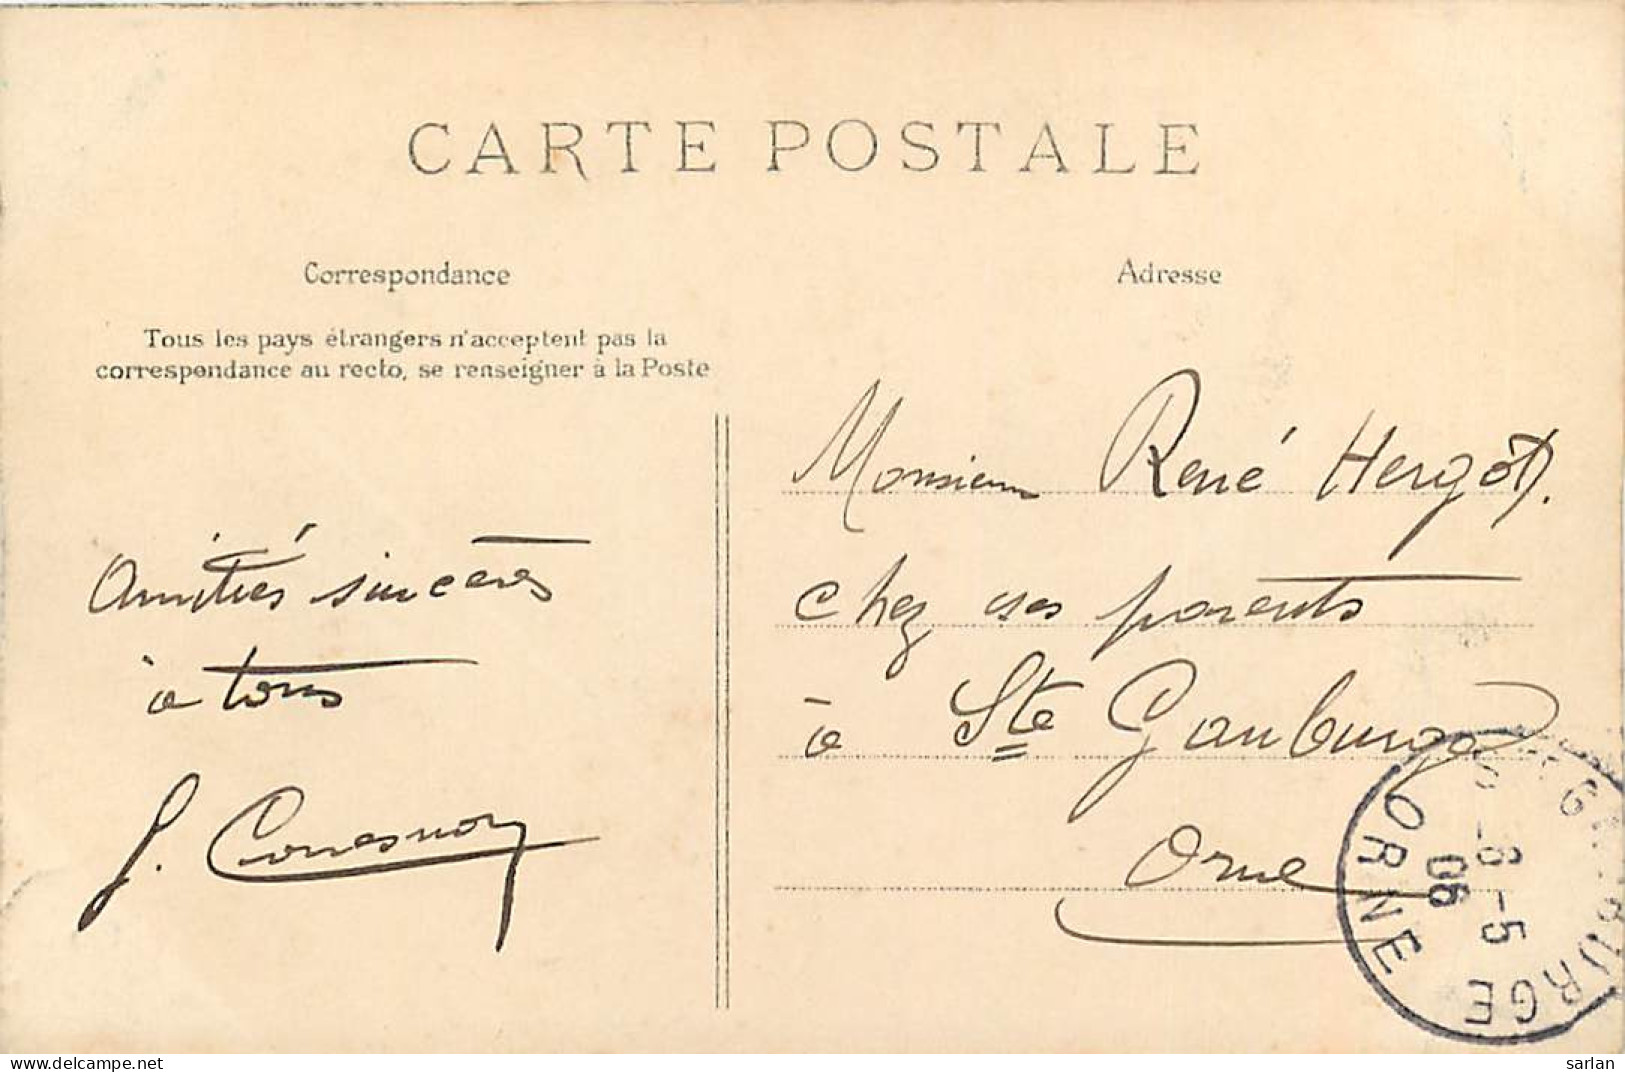 CARTE POSTALE
Correspondance
Tous les pays étrangers n'acceptent pas la
correspondance au recto, se renseigner à la Poste
Amitiés sincères
à tous
Adresse
Monsieur René Hergot.
chez ses parents
à Ste Gauburge
Orne
ORNE
8-5
06
sarlan